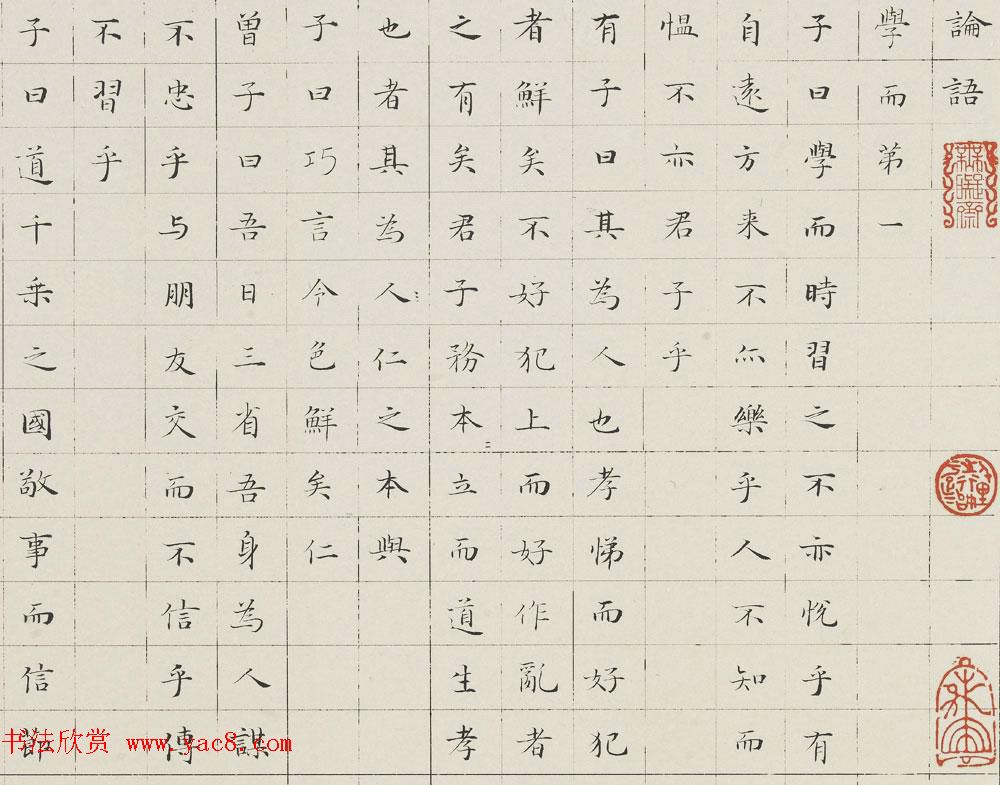 論語
學而第一
子曰學而時習之不亦悅乎有
自遠方來不亦樂乎人不知而
愠不亦君子乎
有子曰其為人也孝悌而好犯
者鮮矣不好犯上而好作亂者
之有矣君子務本立而道生孝
也者其為人仁之本與
子曰巧言令色鮮矣仁
曾子曰吾日三省吾身為人謀
不忠乎与朋友交而不信乎傳
不習乎
子曰道千乗之國敬事而信節
书法欣赏 www.yac8.com